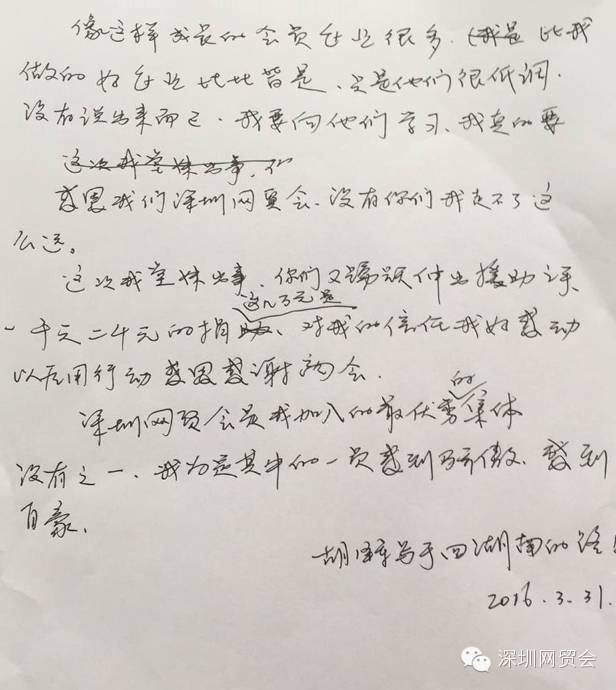 像这样成长的会员企业很多.(我是比我
做的好企业比比皆是、只是他们很低调.
没有说出来而已.我要向他们学习、我真的要
这次我堂妹出事,
感恩我们深圳网贸会.没有你们我走不了这
么远。
这次我堂妹出事.你们又踊跃伸出援助之手
这几万元是
一千 二千元的捐助、对我的信任我好感动
以后用行动感恩感谢商会.
的
深圳网贸会是我加入的最优秀集体
没有之一、我为是其中的一员感到骄傲、感到
自豪、
胡 写于回湖南的路
2016.3.31.
深圳网贸会